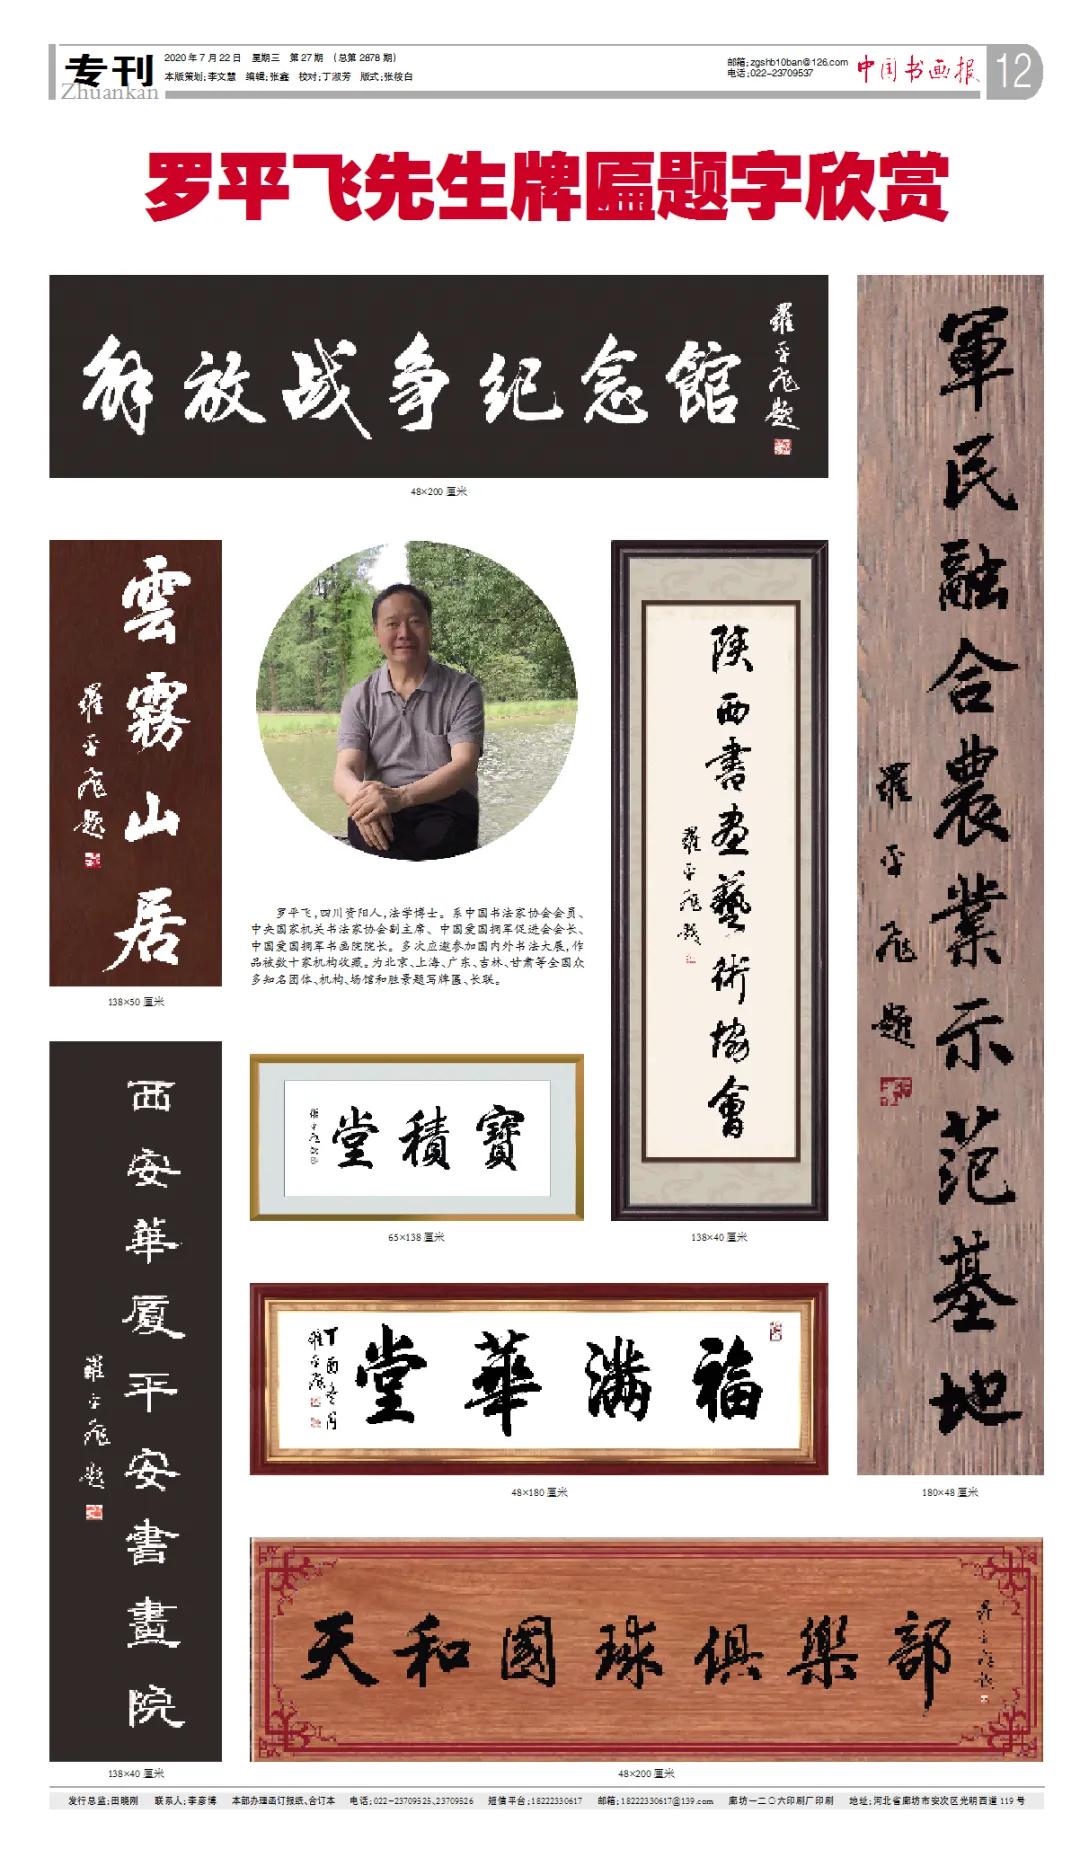 专刊
Zhuankan
2020年7月22日 星期三 第27期 (总第2878期)
本版策划:李文慧 编辑:张鑫 校对:丁淑芳 版式:张筱白
邮箱:zgshb10ban@126.com
电话:022-23709537
中国书画报
12
罗平飞先生牌匾题字欣赏
解放战争纪念馆
羅平飛題
48×200厘米
軍民融合農業示范基地
羅平飛題
180×48厘米
雲霧山居
羅平飛題
138×50厘米
罗平飞,四川资阳人,法学博士。系中国书法家协会会员、
中央国家机关书法家协会副主席、中国爱国拥军促进会会长、
中国爱国拥军书画院院长。多次应邀参加国内外书法大展,作
品被数十家机构收藏。为北京、上海、广东、吉林、甘肃等全国众
多知名团体、机构、场馆和胜景题写牌匾、长联。
陕西書画藝術協會
羅平飛題
138×40厘米
寶積堂
65×138厘米
西安華厦平安書畫院
羅平飛題
138×40厘米
福满華堂
羅平飛
48×180厘米
天和國球俱樂部
羅平飛題
48×200厘米
发行总监:田晓刚 联系人:李彦博 本部办理函订报纸、合订本 电话:022-23709525、23709526 短信平台:18222330617 邮箱:18222330617@139.com 廊坊一二〇六印刷厂印刷 地址:河北省廊坊市安次区光明西道119号